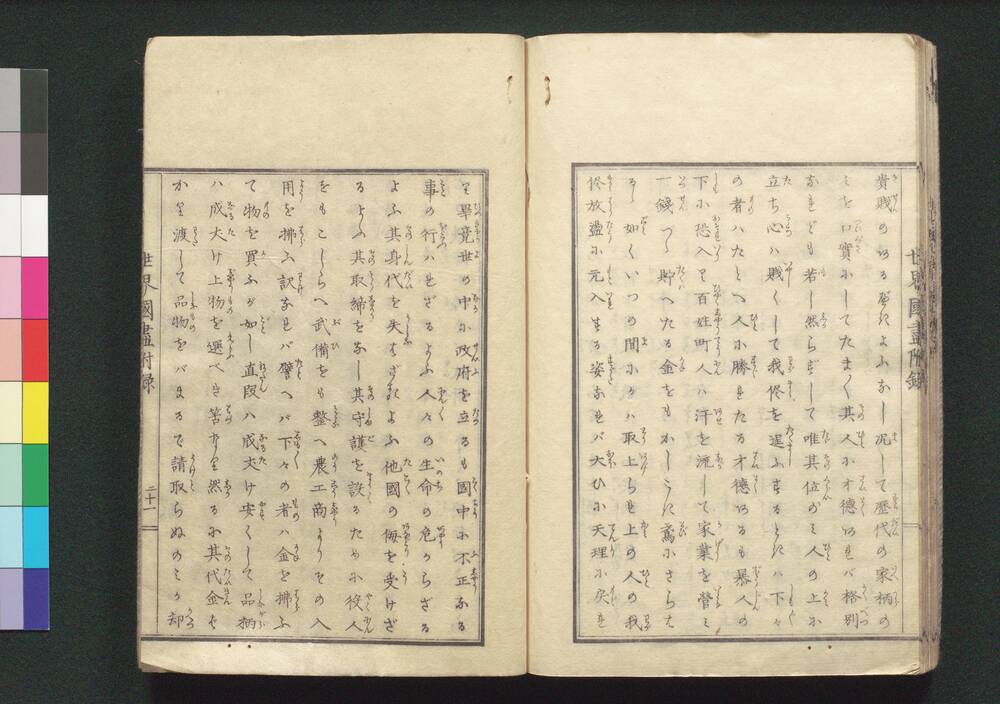 世界國盡附録
貴賤のへだてよふなし況して歴代の家柄の
ミを口實にしてたまたま其人に才德あれバ格別
なれども若し然らずして唯其位のミ人の上に
立ち心ハ賤くして我侭を逞ふするときハ下々
の者ハたとへ人に勝れたる才德あるも暴人の
下に恐入り百姓町人ハ汗を流して家業を營ミ
一錢づゝ貯へたる金をもかしらに鳶にさらは
るゝ如くいつの間にかハ取上られ上の人の我
侭放盪に元入する姿なれバ大ひに天理に戻れ
り畢竟世の中に政府を立るも國中に不正なる
事の行ハれざるよふ人々の生命の危からざる
よふ其身代を失はざるよふ他國の侮を受けざ
るよふ其取締をなし其守護を設るために役人
をもこしらへ武備をも整へ農工商よりその入
用を拂ふ訳なれバ譬へバ下々の者ハ金を拂ふ
て物を買ふが如し直段ハ成丈け安くして品柄
ハ成丈け上物を選べき筈なり然るに其代金を
ハ渡して品物をバまるで請取らぬのミか却
世界國盡附録
二十一